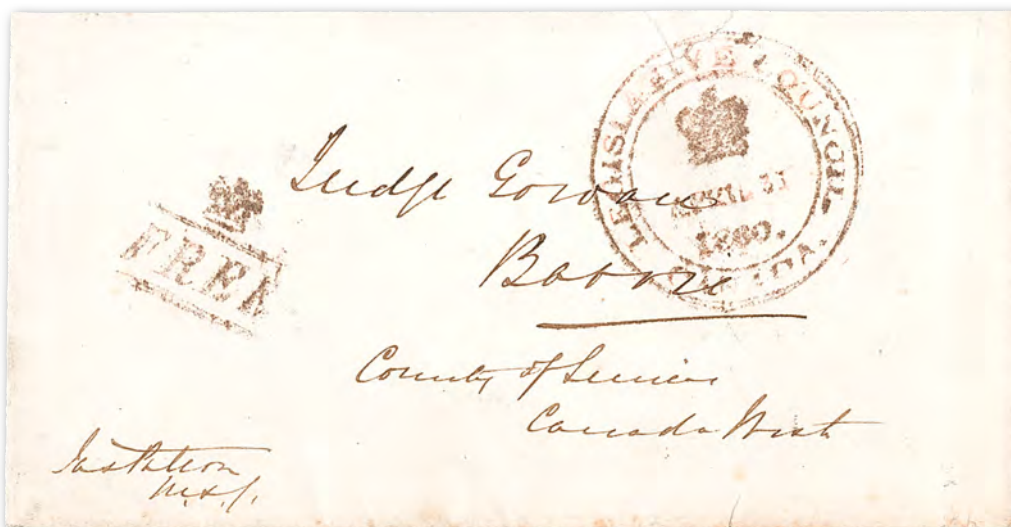 LEGISLATIVE COUNCIL
CANADA.
APRIL 21
1860.
FREE
Judge Gowan
Barrie
County of Simcoe
Canada West
Jas Patton
M.L.C.